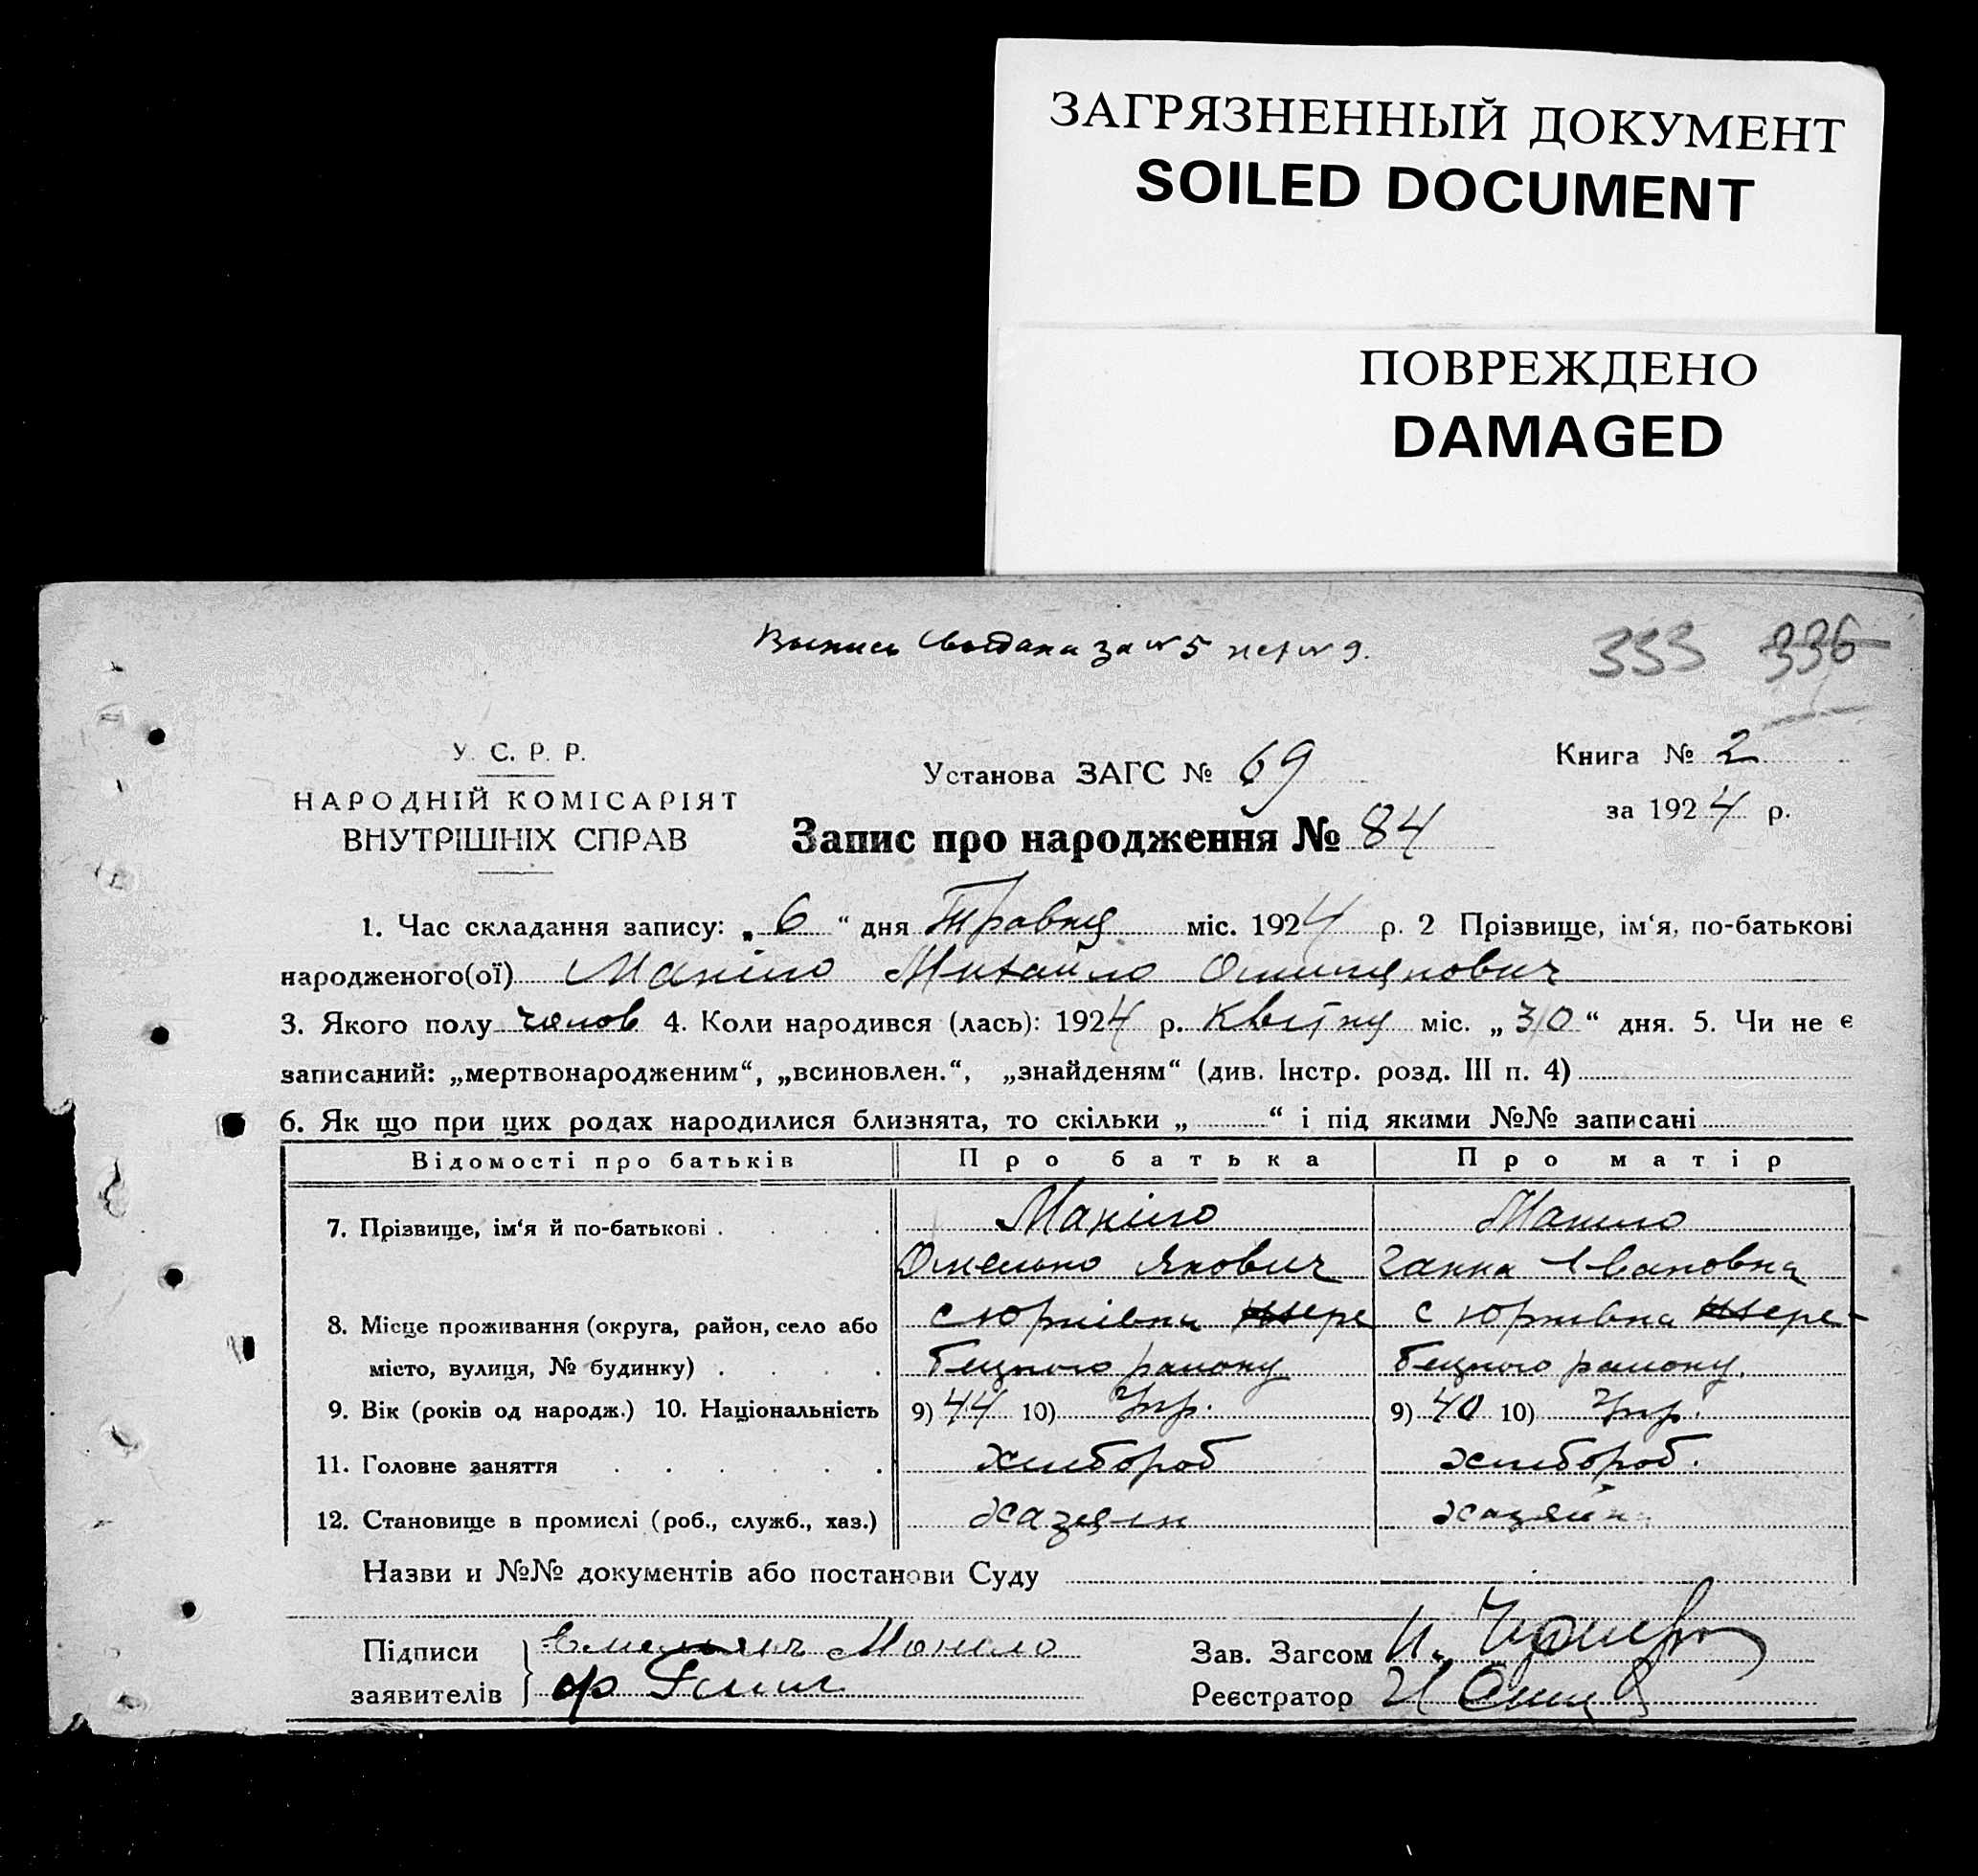 ЗАГРЯЗНЕННЫЙ ДОКУМЕНТ
SOILED DOCUMENT
ПОВРЕЖДЕНО
DAMAGED
Выпись выдана за № 5 9.
333 336
У. С. Р. Р.
НАРОДНІЙ КОМІСАРІЯТ
ВНУТРІШНІХ СПРАВ
Установа ЗАГС № 69
Книга № 2
за 1924 р.
Запис про народження № 84
1. Час складання запису: „6“ дня Травня міс. 1924 р. 2 Прізвище, ім‘я, по-батькові
народженого(ої) Маніло Михайло
3. Якого полу чолов 4. Коли народився (лась): 1924 р. Квітня міс. „30“ дня. 5. Чи не є
записаний: „мертвонародженим“, „всиновлен.“, „знайденям“ (див. Інстр. розд. III п. 4)
6. Як що при цих родах народилися близнята, то скільки „ “ і під якими №№ записані
Відомості про батьків Про батька Про матір
7. Прізвище, ім‘я й по-батькові . . . . Маніло Маніло
Омелько Якович Ганна Івановна
8. Місце проживання (округа, район, село або с Юрківка с Юрківка
місто, вулиця, № будинку) . . . . бецкого району бецкого району.
9. Вік (років од народж.) 10. Національність 9) 44 10) Укр. 9) 40 10) Укр.
11. Головне заняття . . . . . . хлібороб хлібороб.
12. Становище в промислі (роб., служб., хаз.) хазяїн хазяйка
Назви и №№ документів або постанови Суду
Підписи Емельян Монило
заявителів
Зав. Загсом
Реєстратор